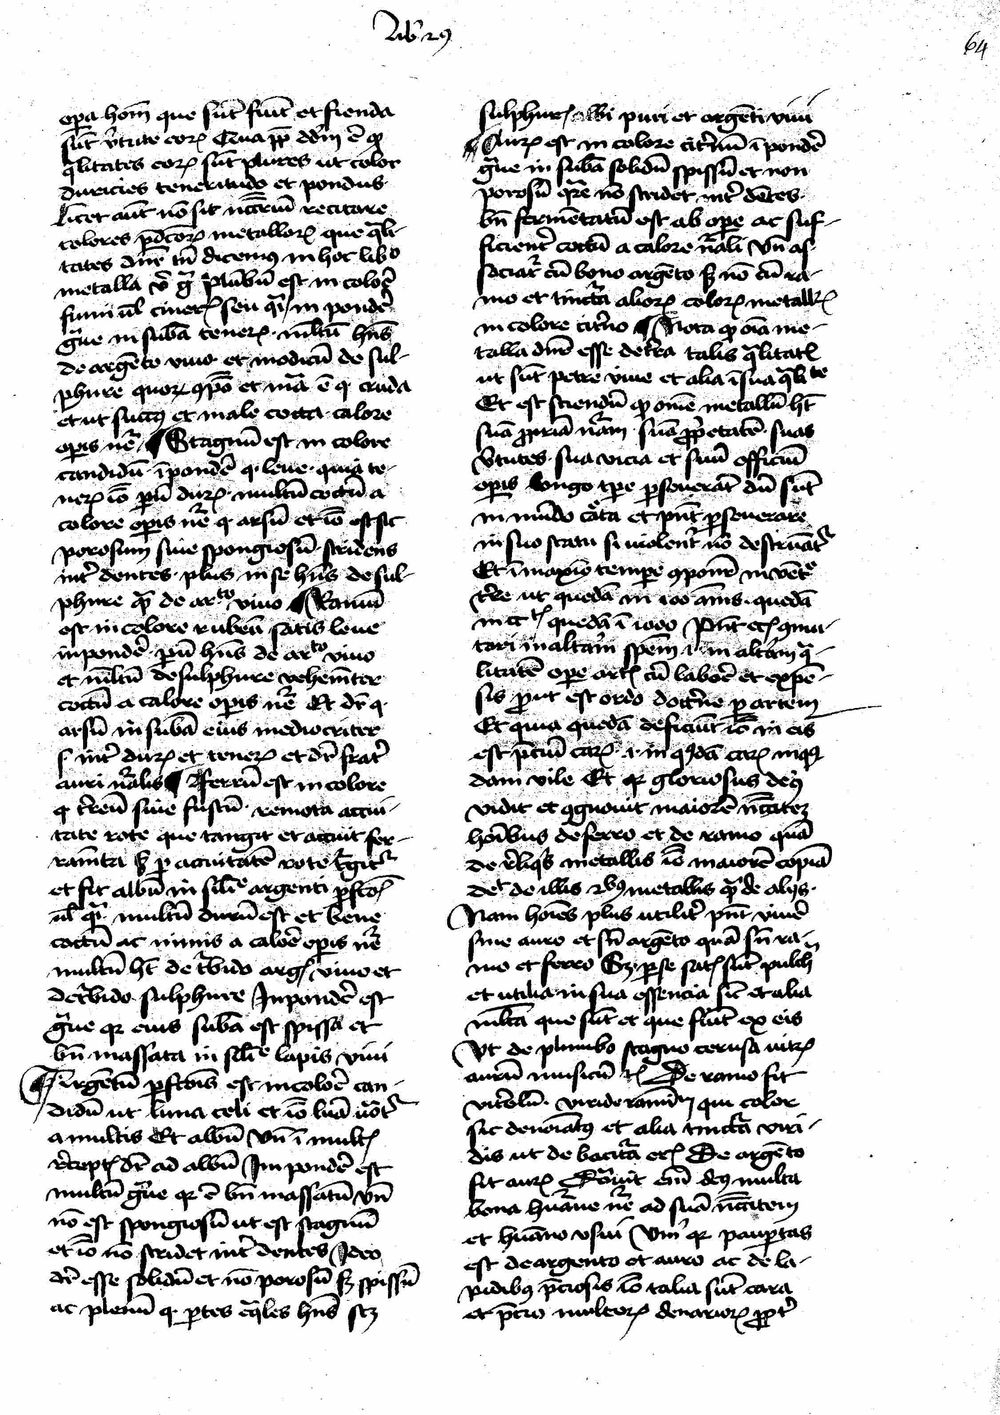 Lib 29
64
opa hom̄ que sūt fiūt et fienda
sūt v̄tute eoꝝ Qua pp̄ dd̄m ē ꝙ
qlitates eoꝝ sūt plures ut color
duricies teneritudo et pondus
Licet aūt nō sit nc̄c̄riū recitare
colores pd̄coꝝ metalloꝝ que qli-
tates dn̄r tn̄ dicemus in hoc libo
metalla v̄ gͣ plūbū est in colore
fumi ul̄ cineꝝ seu qi in ponde
gͣue in subā teneꝝ multū hn̄s
de argēto vivo et modicū de sul-
phure quoꝝ ꝯpō et mā ē q̄ cruda
et ut succꝯ et male cocta calore
opis nr̄e Stagnū est in colore
candidū īpondē q̄ leue quia te-
neꝝ iō pū duꝝ multū coctū a
calore opis nr̄e q̄ arsū et iō est sic
porosum siue spongiosū stridens
int̄ dentes plus in se hn̄s de sul-
phure qͣ de arto vivo Ramū
est in colore rubeū satis leue
in pondē pū hn̄s de arto vivo
et multū de sulphure vehemter
coctū a calore opis nr̄e Et dr̄ q̄
arsū in subā eius mediocriter
s int̄ duꝝ et teneꝝ et dr̄ frat̄
auri nͣlis Ferrū est in colore
q̄ t̄reū siue fuscū remota acui-
tate rote que tangit et acuit fer-
ramta sꝫ p acuitatē rote tͣgit
et fit albū in silie argenti pfcoꝝ
ul̄ qi multū durū est et bene
coctū ac nimis a calore opis nr̄e
multū ht̄ de t̄bido argꝭ vivo et
de t̄bido sulphure In pondē est
gͣue qꝛ eius subā est spissa et
bn̄ massata in silie lapis vivi
Argētū pfcois est in colore can-
didū ut luna celi et iō lūa uocat
a multis Et albū Vn̄ ī multꝭ
r̄ceptꝭ dr̄ ad albū In pondē est
multū gͣue qꝛ ē bn̄ massatū Vn̄
nō est spongiosū ut est stagnū
et iō nō stridet int̄ dentes Ideo
dr̄ esse solidū et nō porosū sꝫ spissū
ac plenū q̄ ptes eqͣles hn̄s scꝫ
sulphuꝝ albi puri et argēti vivi
Auꝝ est in colore citⁱnū ī pondē
gͣue in subā solidū spissū et non
porosū qͣre nō stridet int̄ dētes
bn̄ fermētatū est ab ope ac suf-
ficient̄ coctū a calore nͣali Vn̄ as
sociat̄ cū bono argēto sꝫ nō cū ra-
mo et tinctͣa alioꝝ coloꝝ metalloꝝ
in colore citⁱno Nota ꝙ oīa me-
talla dn̄t esse de t̄ra talis qͣlitatꝭ
ut sūt petre vive et alia ī sua qlite
Et est sciendū ꝙ ome metallū ht̄
suā ppriā nāͣm suā ppͥetatē suas
v̄tutes sua vicia et suū officiū
opis longo tpe pseuerāt dū sūt
in mūdo cāta et pn̄t pseuerare
in suo statu si uiolent̄ nō destruāt
Et ī maxīo tempe ꝯponūt in vent̄
t̄re ut quedā in 100 anīs quedā
in CCtꝭ quedā ī 1000 Pn̄t etꝭ ꝯmu-
tari in altam spēm i in altam qͣ-
litatē ope artꝭ cū labore et expē-
sis put est ordo doctⁱne p artem
Et quia quedā deficiūt iō in eis
est pͨiū caꝝ i in qͥdā caꝝ in qͥ-
dam vile Et qꝛ gloriosus deꝯ
vidit et ꝯgnouit maiorē nc̄c̄itez
hoībus de ferro et de ramo quā
de reliqͥs metallis iō maiorē copiā
det de illis 2bꝯ metallis qͣ de alijs
Nam hoīes plus utilit̄ pn̄t viuē
sine auro et sn̄ argēto quā sn̄ ra-
mo et ferro Sꝫ p se satꝭ sūt pulch
et utilia in sua essencia sic et alia
multa que sūt et que fiūt ex eis
Vt de plumbo stagno cerusa uitꝝ
aurū musicū tꝭ De ramo fit
vit̄olū viride ramū qui color
sic denoiatꝯ et alia tinctͣa viri-
dis ut de bacitͣa eꝝ De argēto
fit auꝝ Donauit em̄ deꝯ multa
bona huāne nr̄e ad suā nc̄c̄item
et huāno usui Vn̄ qꝛ paupͭas
est de argento et auro ac de la-
pidibꝯ pͨiosis iō talia sūt cara
et pͨio multoꝝ denarioꝝ ppt̄